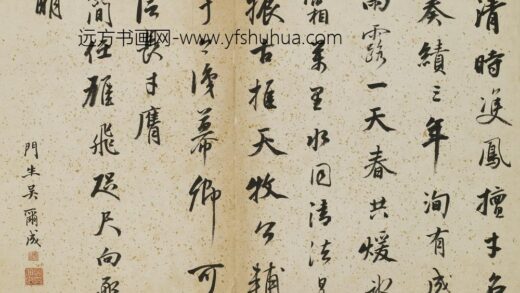 远方书画网-www.yfshuhua.com
清時鳳擅才名
奏績三年洵有成
雨露一天春共煖氷
霜萬里水同清法星
振古推天牧公輔
于幕卿可
才膺
間任雄飛咫尺向承
明
門生吳爾成